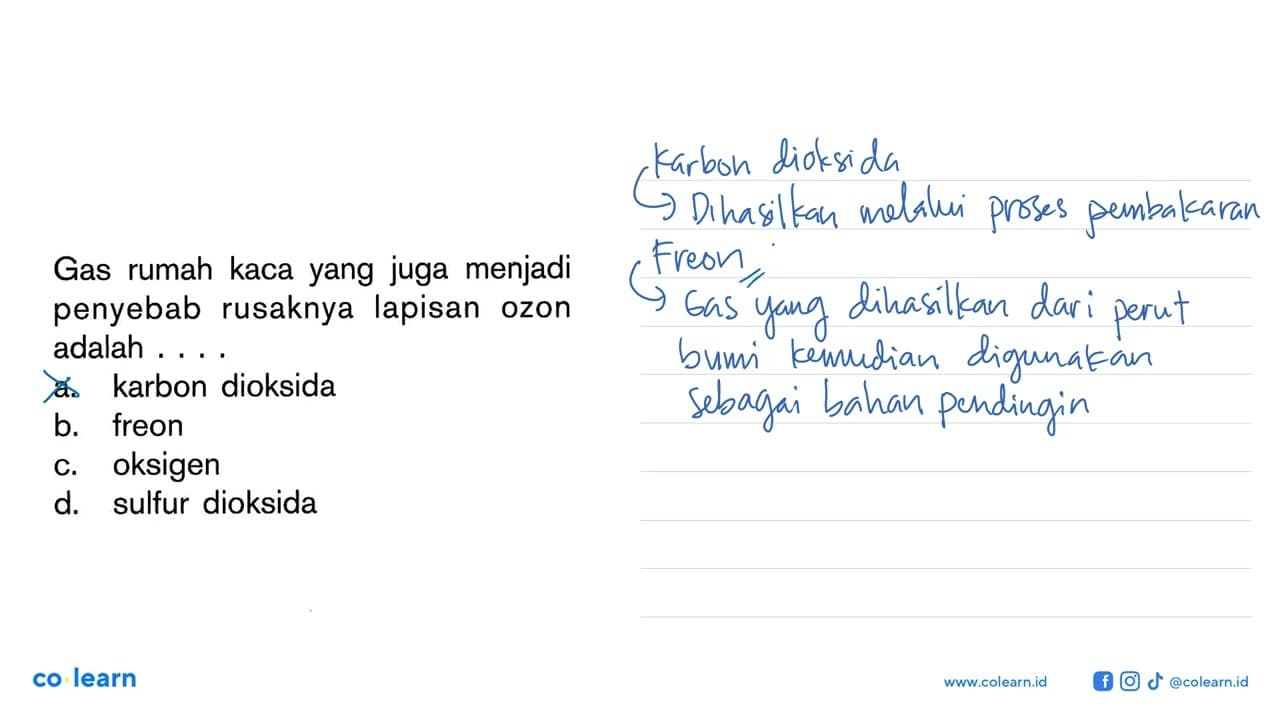 Gas rumah kaca yang juga menjadi
penyebab rusaknya lapisan ozon
adalah . . . .
a. karbon dioksida
b. freon
c. oksigen
d. sulfur dioksida
Karbon dioksida
→ Dihasilkan melalui proses pembakaran
Freon
→ Gas yang dihasilkan dari perut
bumi kemudian digunakan
sebagai bahan pendingin
co learn
www.colearn.id
@colearn.id